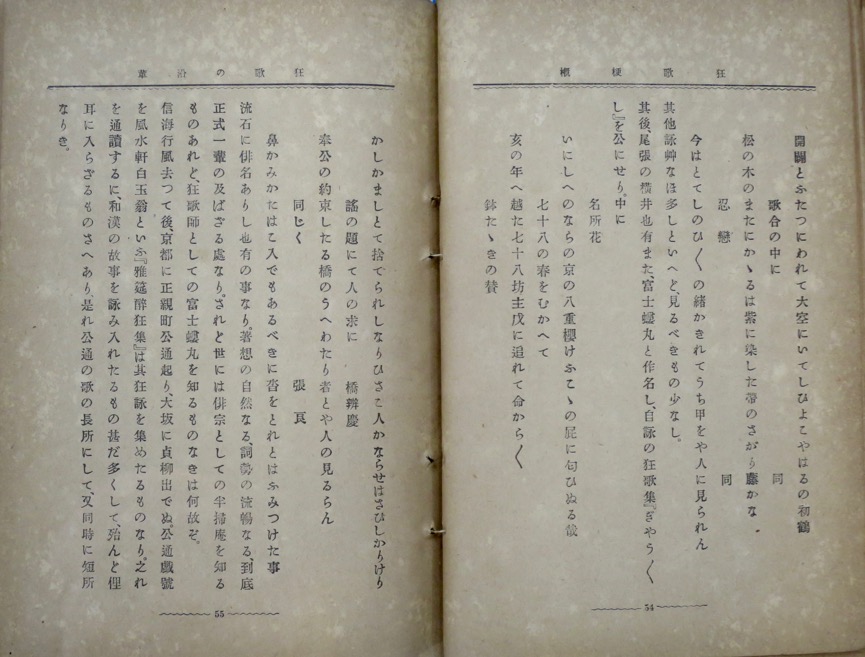 狂歌梗概
開闢とふたつにわれて大空にいてしひよこやはるの初鶴
歌合の中に　同
松の木のまたにかゝるは紫に染した帶のさがり藤かな
忍戀　同
今はとてしのひ〱の緖かきれてうち甲をや人に見られん
其他詠艸なほ多しといへど、見るべきもの少なし。
其後、尾張の橫井也有また、富士
丸と作名し、自詠の狂歌集『ぎやう〱
し』を公にせり。中に
名所花
いにしへのならの京の八重櫻けふこゝの屁に匂ひぬる哉
七十八の春をむかへて
亥の年へ越た七十八坊主戊に追れて命から〱
鉢たゝきの賛
54
狂歌の沿革
かしかましとて捨てられしなりひさこ人かならせはさひしかりけり
謠の題にて人の求に　橋辨慶
奉公の約束したる橋のうへわたり者とや人の見るらん
同じく　張良
鼻かみかたはこ入でもあるべきに沓をとれとはふみつけた事
流石に俳名ありし也有の事なり。著想の自然なる、詞勢の流暢なる、到底
正式一輩の及ばざる處なり。されど世には俳宗としての半掃庵を知る
ものあれど、狂歌師としての富士
丸を知るものなきは何故ぞ。
信海行風去つて後、京都に正親町公通起り、大坂に貞柳出でぬ。公通戲號
を風水軒白玉翁といふ『雅筵醉狂集』は其狂詠を集めたるものなり。之れ
を通讀するに、和漢の故事を詠み入れたるもの甚だ多くして、殆んと俚
耳に入らざるものさへあり、是れ公通の歌の長所にして、又同時に短所
なりき。
55